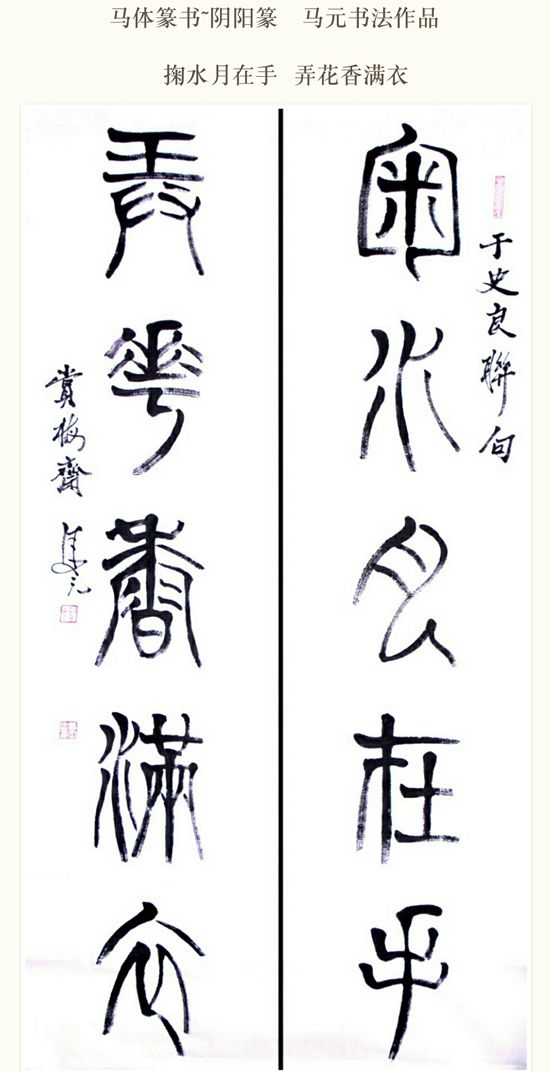 马体篆书~阴阳篆 马元书法作品
掬水月在手 弄花香满衣
于史良聯句
匊水月在手
弄華香滿衣
賞梅齋
马元